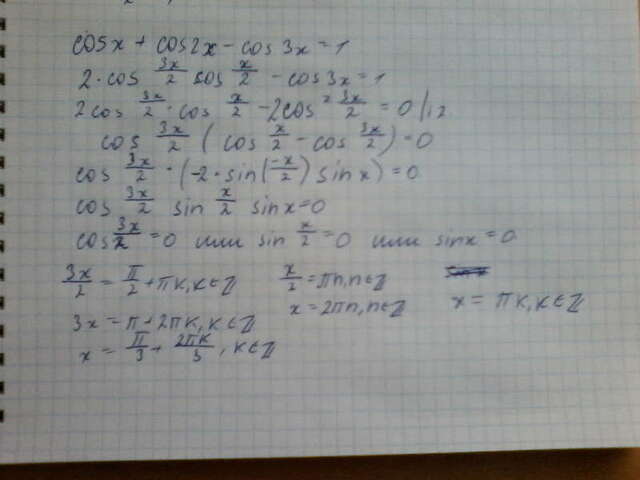 cosx + cos2x - cos 3x = 1
2·cos 3x/2 cos x/2 - cos3x = 1
2cos 3x/2 · cos x/2 - 2cos² 3x/2 = 0 |:2
cos 3x/2 (cos x/2 - cos 3x/2) = 0
cos 3x/2 · (-2·sin(-x/2) sin x) = 0
cos 3x/2 sin x/2 sin x = 0
cos 3x/2 = 0 или sin x/2 = 0 или sinx = 0
3x/2 = π/2 + πk, k∈ℤ x/2 = πn, n∈ℤ
3x = π + 2πk, k∈ℤ x = 2πn, n∈ℤ x = πk, k∈ℤ
x = π/3 + 2πk/3, k∈ℤ